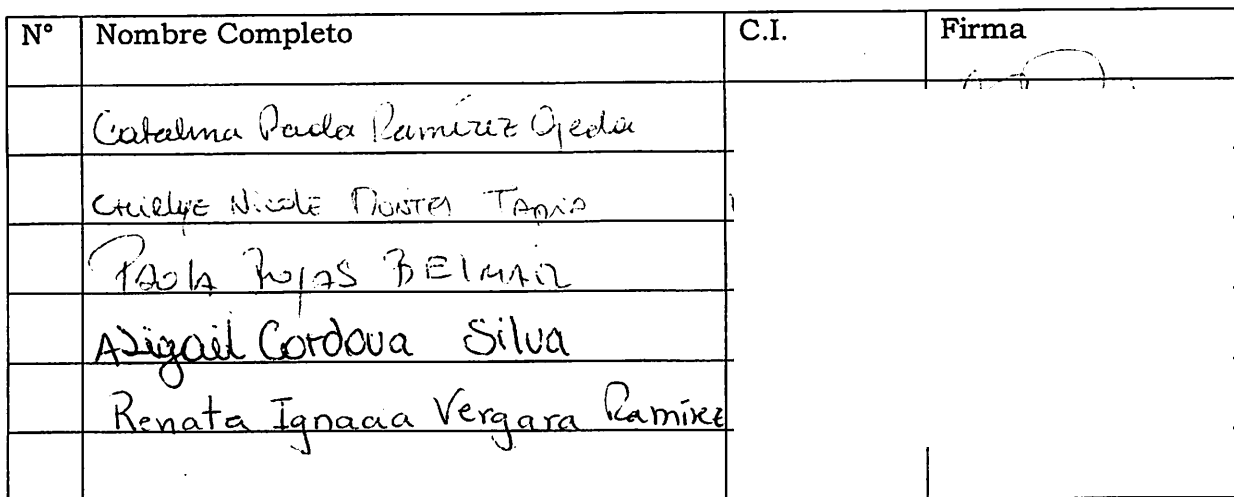 N° Nombre Completo C.I. Firma
Catalina Paola Ramírez Ojeda
Nicole Montes Tapia
Paola Rojas BElmar
Abigail Cordova Silva
Renata Ignacia Vergara Ramírez